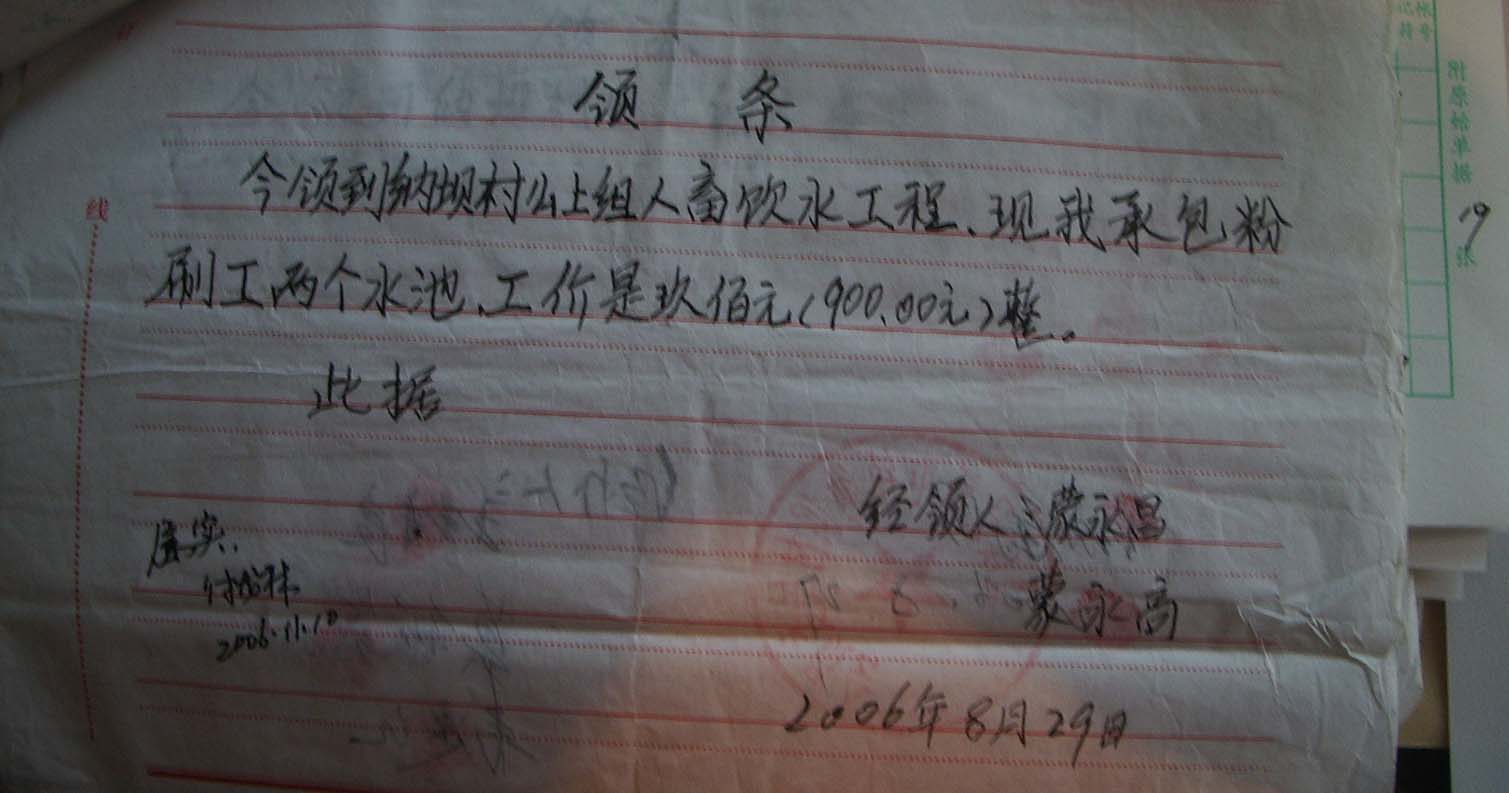 领 条
今领到纳坝村么上组人畜饮水工程、现我承包粉
刷工两个水池、工价是玖佰元(900.00元)整。
此据
经领人:蒙永昌
蒙永高
2006年8月29日
属实.
2006.11.10
线
附原始单据 19 张